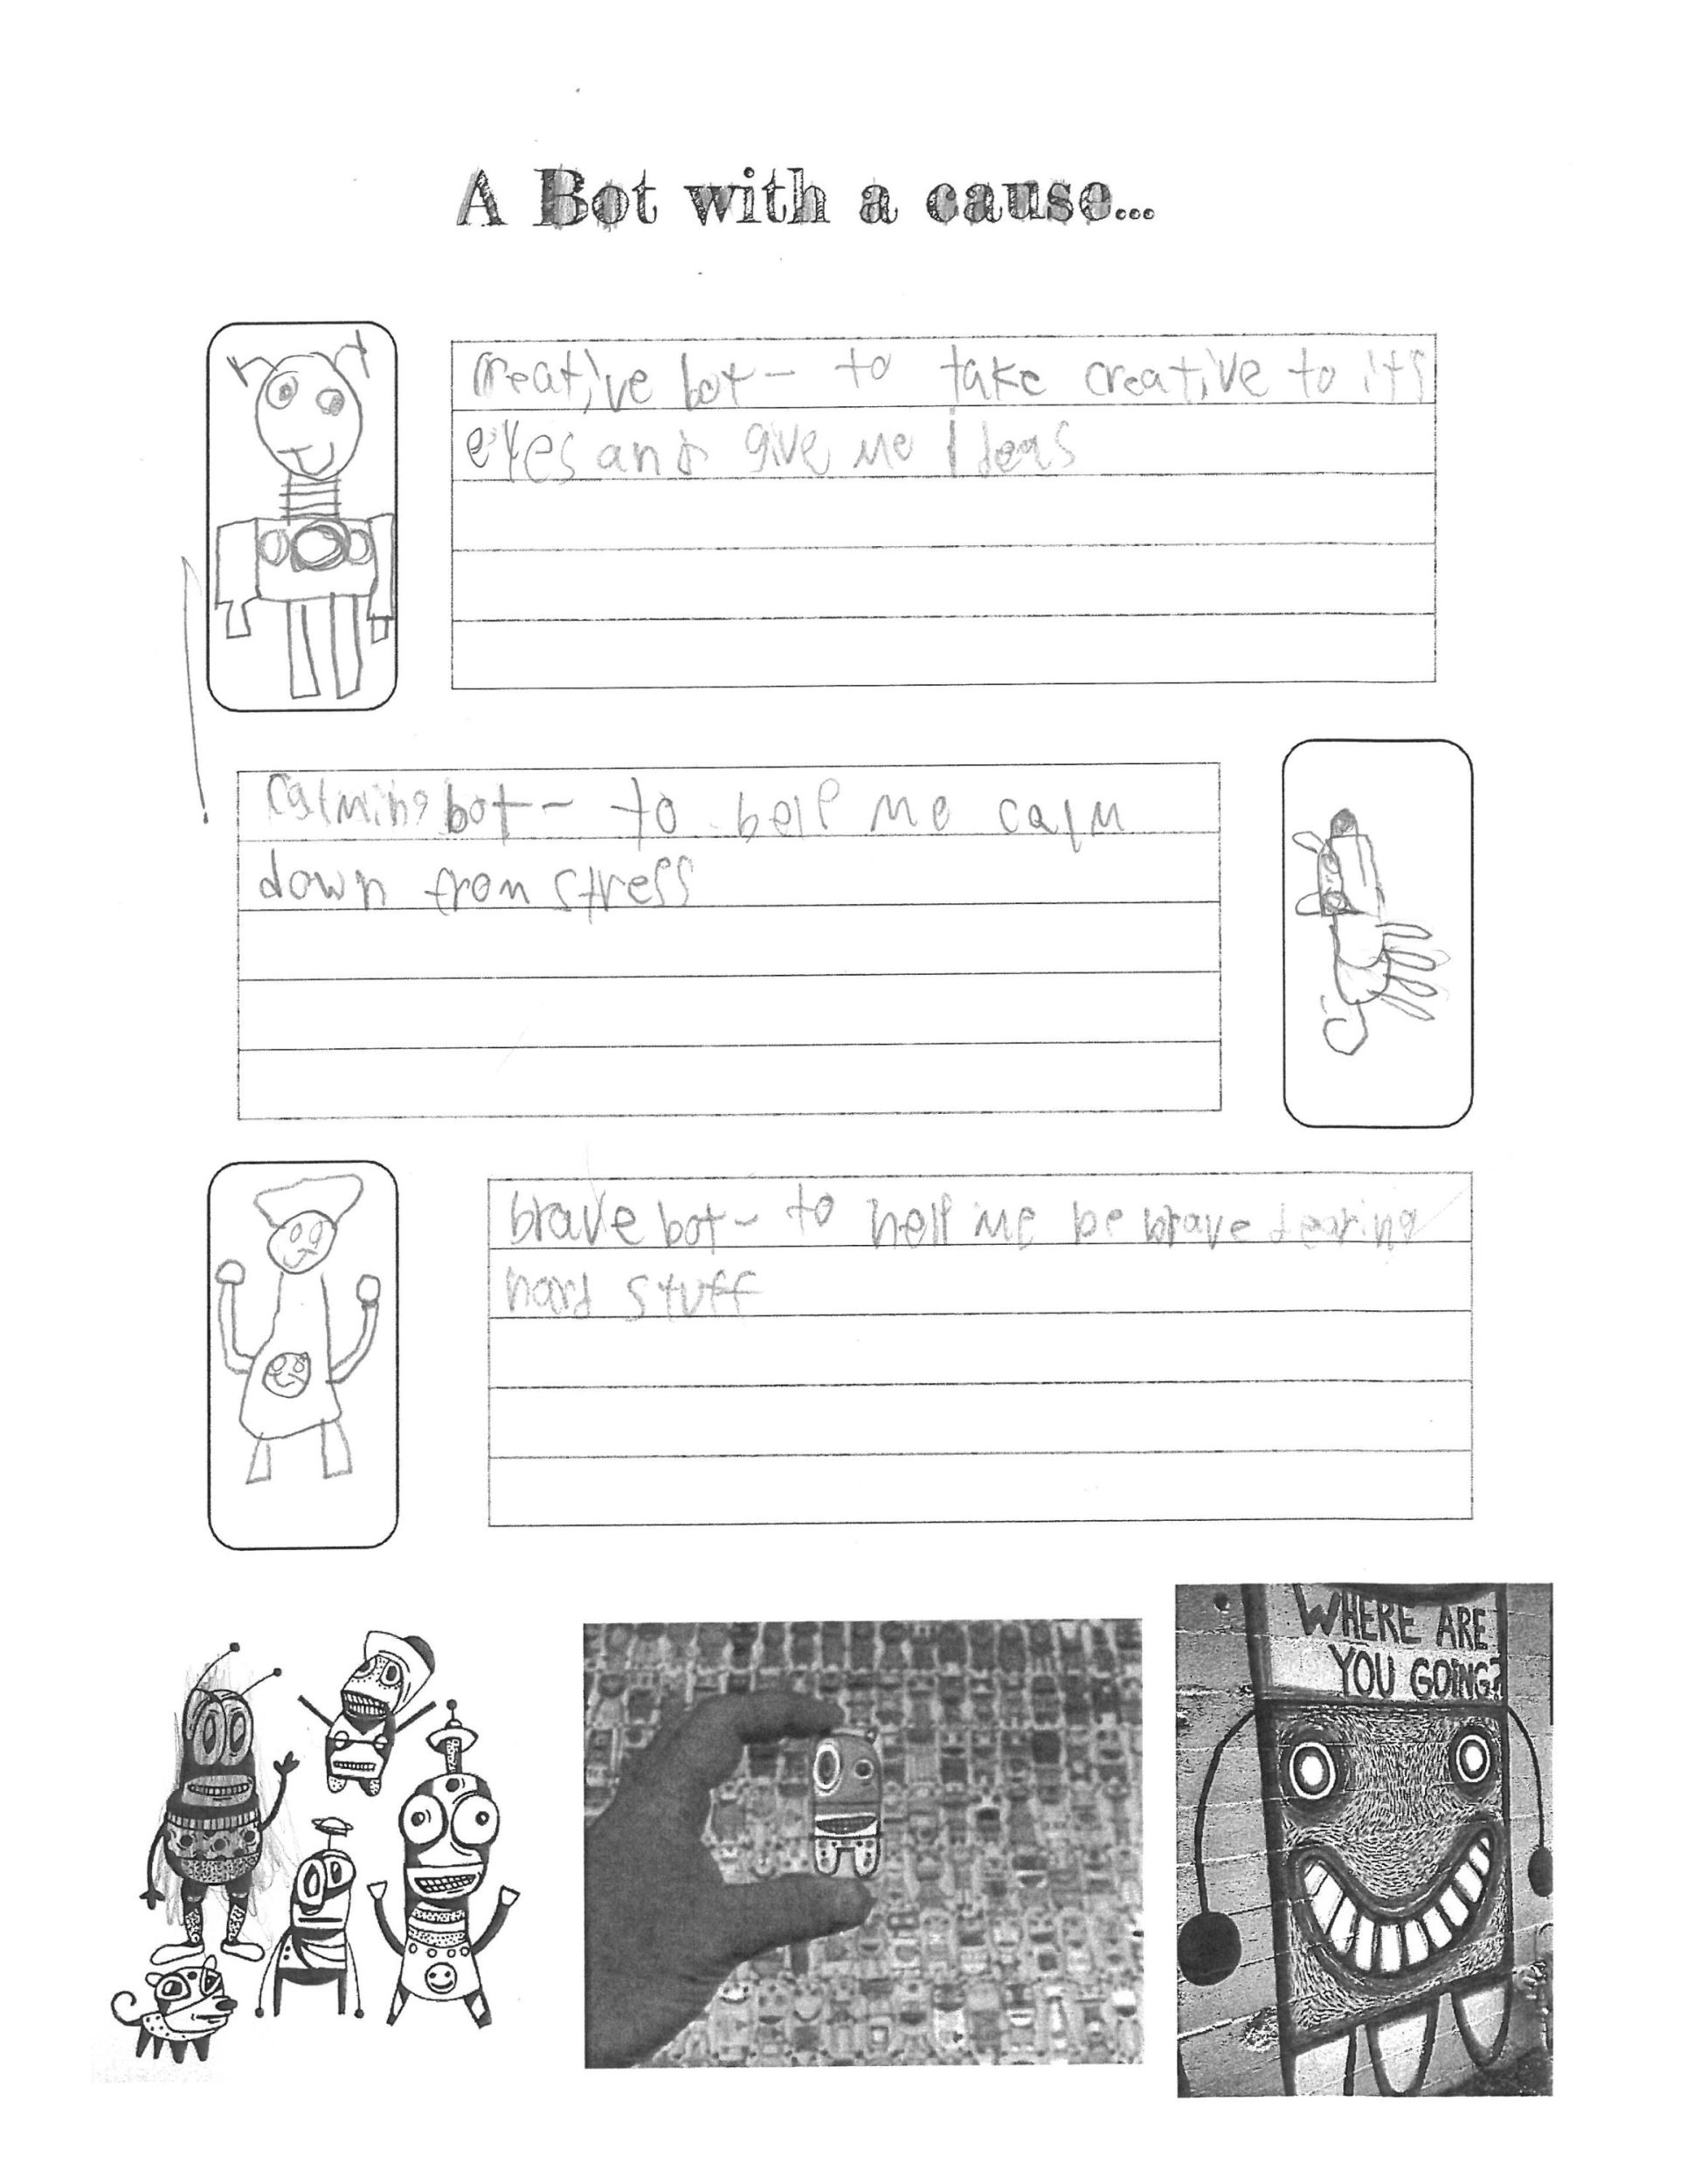 A Bot with a cause...
creative bot- to take creative to its
eyes and give me Ideas
Calming bot- to help me calm
down from stress
brave bot- to help me be brave
hard stuff
WHERE ARE
YOU GOING?